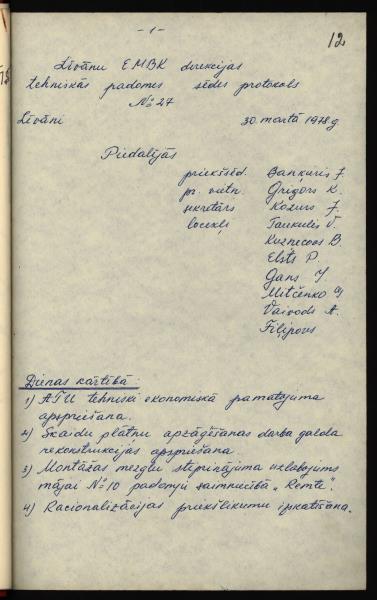 - 1 -
12
Līvānu EMBK direkcijas
tehniskās padomes sēdes protokols
№ 27
Līvāni 30. martā 1978 g
Piedalījās
priekšsēd. Baņķuris J.
pr. vietn. Grigors K.
sekretārs Kozurs J.
locekļi Taukulis V.
Kuzņecovs B.
Elsts P.
Gans J.
Mitčenko
Vaivods A.
Fiļipovs
Dienas kārtībā
1) ATU tehniski ekonomiskā pamatojuma
apspriešana.
2) Skaidu plātņu apzāģēšanas darba galda
rekonstrukcijas apspriešana
3) Montāžas mezglu stiprinājuma uzlabojums
mājai № 10 padomju saimniecībā „Remte".
4) Racionalizācijas priekšlikumu izskatīšana.